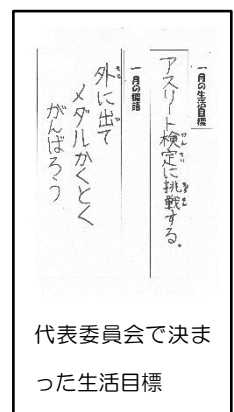 一月の生活目標
アスリート検定に挑戦する。
一月の標語
外に出て
メダルかくとく
がんばろう
代表委員会で決ま
った生活目標